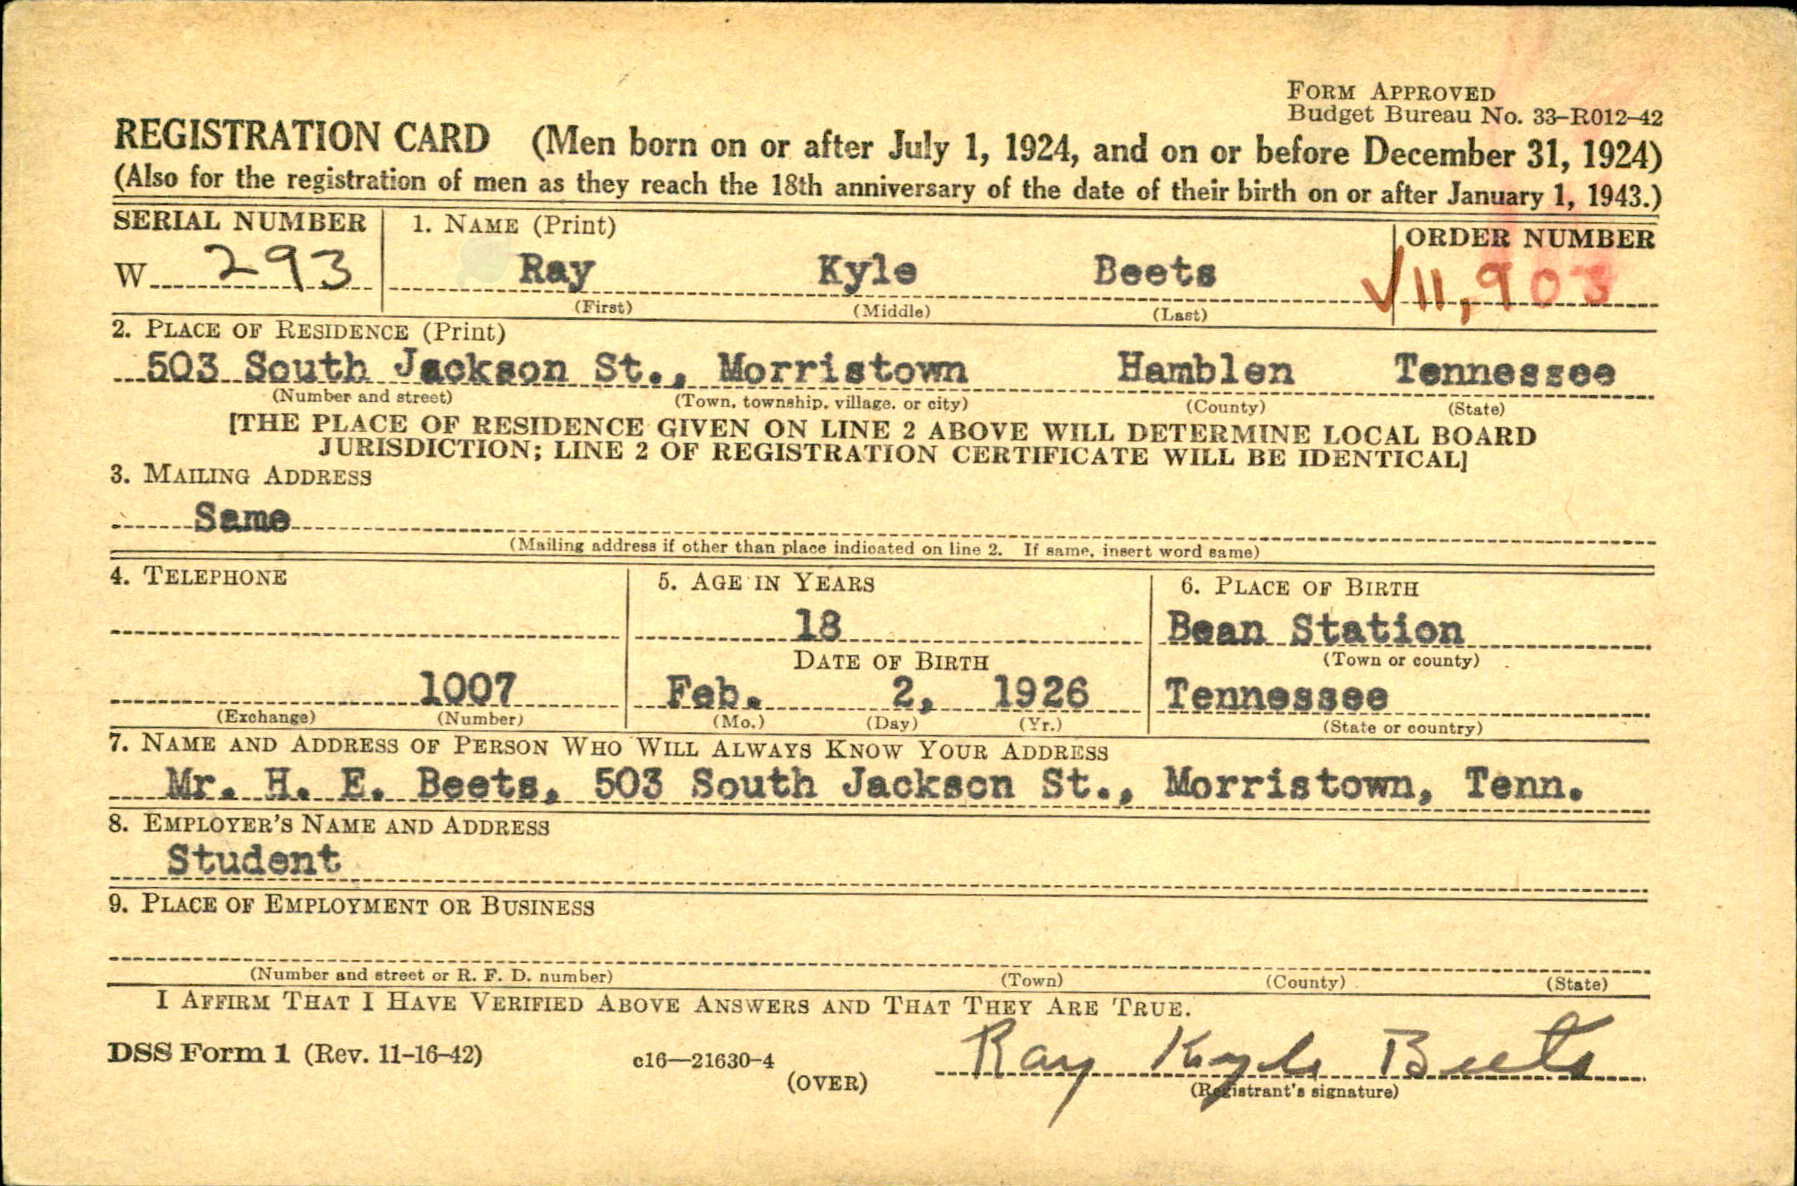 FORM APPROVED
Budget Bureau No. 33–R012–42
REGISTRATION CARD (Men born on or after July 1, 1924, and on or before December 31, 1924)
(Also for the registration of men as they reach the 18th anniversary of the date of their birth on or after January 1, 1943.)
SERIAL NUMBER 1. NAME (Print) ORDER NUMBER
W 293 Ray Kyle Beets √11,903
(First) (Middle) (Last)
2. PLACE OF RESIDENCE (Print)
503 South Jackson St., Morristown Hamblen Tennessee
(Number and street) (Town, township, village, or city) (County) (State)
[THE PLACE OF RESIDENCE GIVEN ON LINE 2 ABOVE WILL DETERMINE LOCAL BOARD
JURISDICTION; LINE 2 OF REGISTRATION CERTIFICATE WILL BE IDENTICAL]
3. MAILING ADDRESS
Same
(Mailing address if other than place indicated on line 2. If same, insert word same)
4. TELEPHONE 5. AGE IN YEARS 6. PLACE OF BIRTH
18 Bean Station
DATE OF BIRTH (Town or county)
1007 Feb. 2, 1926 Tennessee
(Exchange) (Number) (Mo.) (Day) (Yr.) (State or country)
7. NAME AND ADDRESS OF PERSON WHO WILL ALWAYS KNOW YOUR ADDRESS
Mr. H. E. Beets, 503 South Jackson St., Morristown, Tenn.
8. EMPLOYER'S NAME AND ADDRESS
Student
9. PLACE OF EMPLOYMENT OR BUSINESS
(Number and street or R. F. D. number) (Town) (County) (State)
I AFFIRM THAT I HAVE VERIFIED ABOVE ANSWERS AND THAT THEY ARE TRUE.
DSS Form 1 (Rev. 11–16–42) c16—21630–4 (OVER) Ray Kyle Beets
(Registrant's signature)